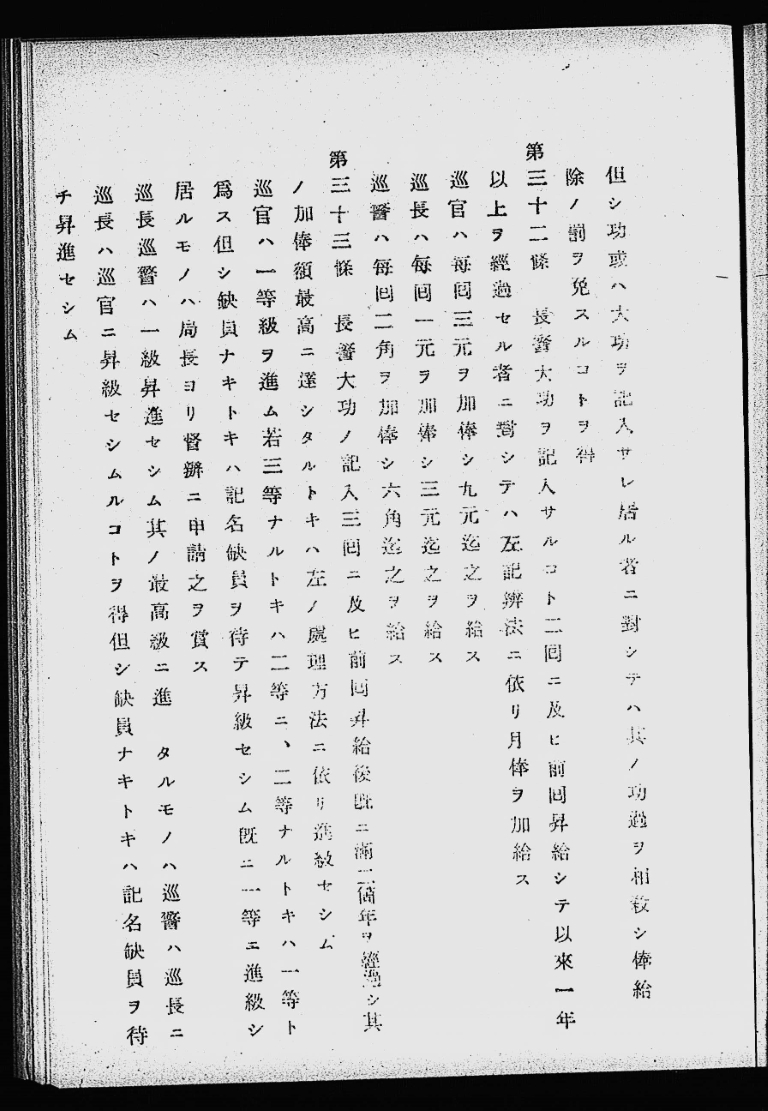 但シ功或ハ大功ヲ記入サレ居ル者ニ對シテハ其ノ功過ヲ相殺シ俸給
除ノ罰ヲ免スルコトヲ得
第三十二條　長警大功ヲ記入サルコト二回ニ及ヒ前回昇給シテ以來一年
以上ヲ經過セル者ニ對シテハ左記辨法ニ依リ月俸ヲ加給ス
巡官ハ每回三元ヲ加俸シ九元迄之ヲ給ス
巡長ハ每回一元ヲ加俸シ三元迄之ヲ給ス
巡警ハ每回二角ヲ加俸シ六角迄之ヲ給ス
第三十三條　長警大功ノ記入三回ニ及ヒ前回昇給後既ニ滿二個年ヲ經過シ其
ノ加俸額最高ニ達シタルトキハ左ノ處理方法ニ依リ進級セシム
巡官ハ一等級ヲ進ム若三等ナルトキハ二等ニ、二等ナルトキハ一等ト
爲ス但シ缺員ナキトキハ記名缺員ヲ待テ昇級セシム既ニ一等ニ進級シ
居ルモノハ局長ヨリ督辦ニ申請之ヲ賞ス
巡長巡警ハ一級昇進セシム其ノ最高級ニ進　タルモノハ巡警ハ巡長ニ
巡長ハ巡官ニ昇級セシムルコトヲ得但シ缺員ナキトキハ記名缺員ヲ待
チ昇進セシム